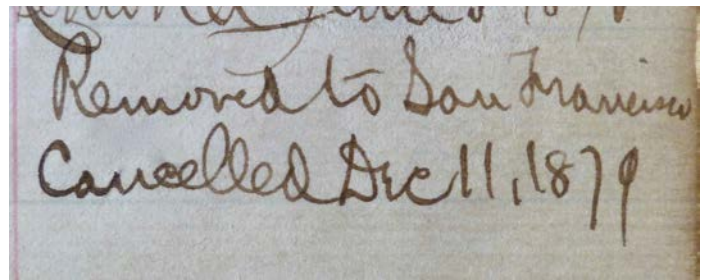 Removed to San Francisco
Cancelled Dec 11, 1879